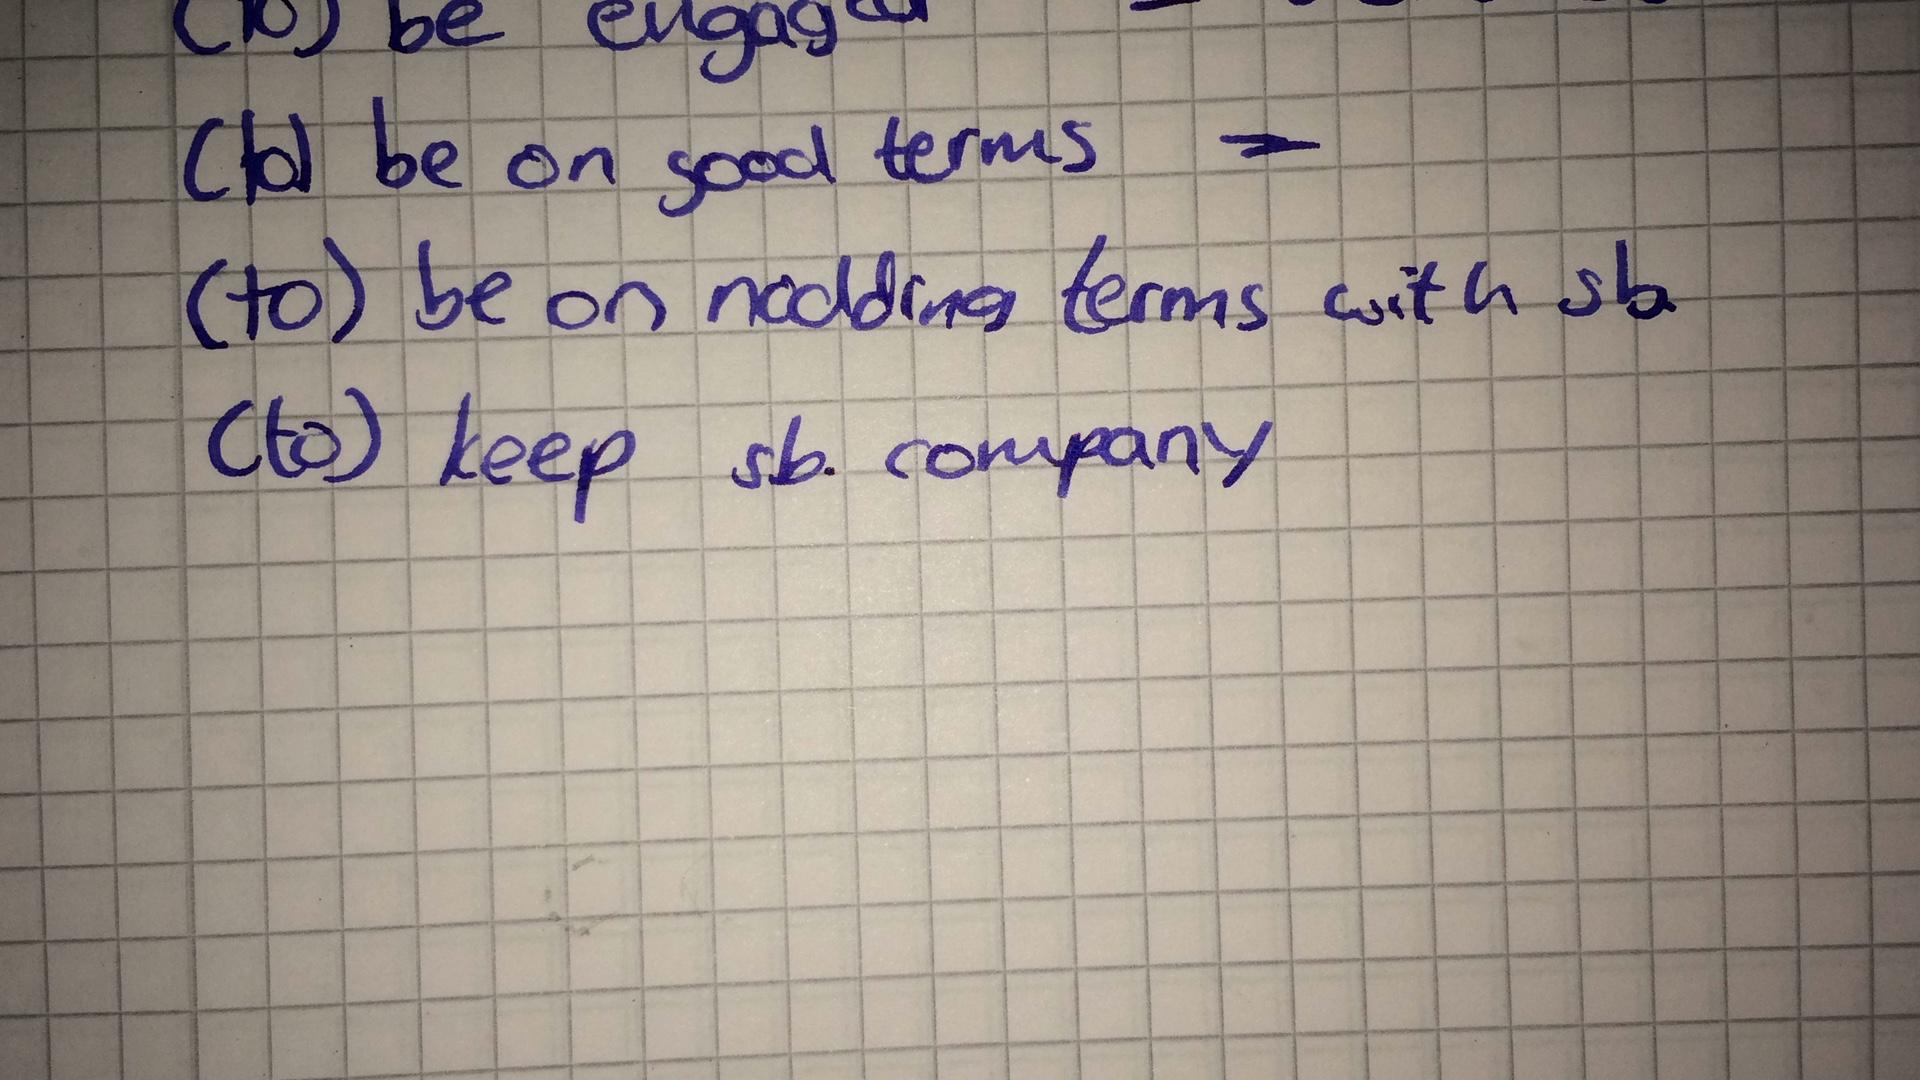 (to) be engaged =
(to) be on good terms =
(to) be on nodding terms with sb.
(to) keep sb. company